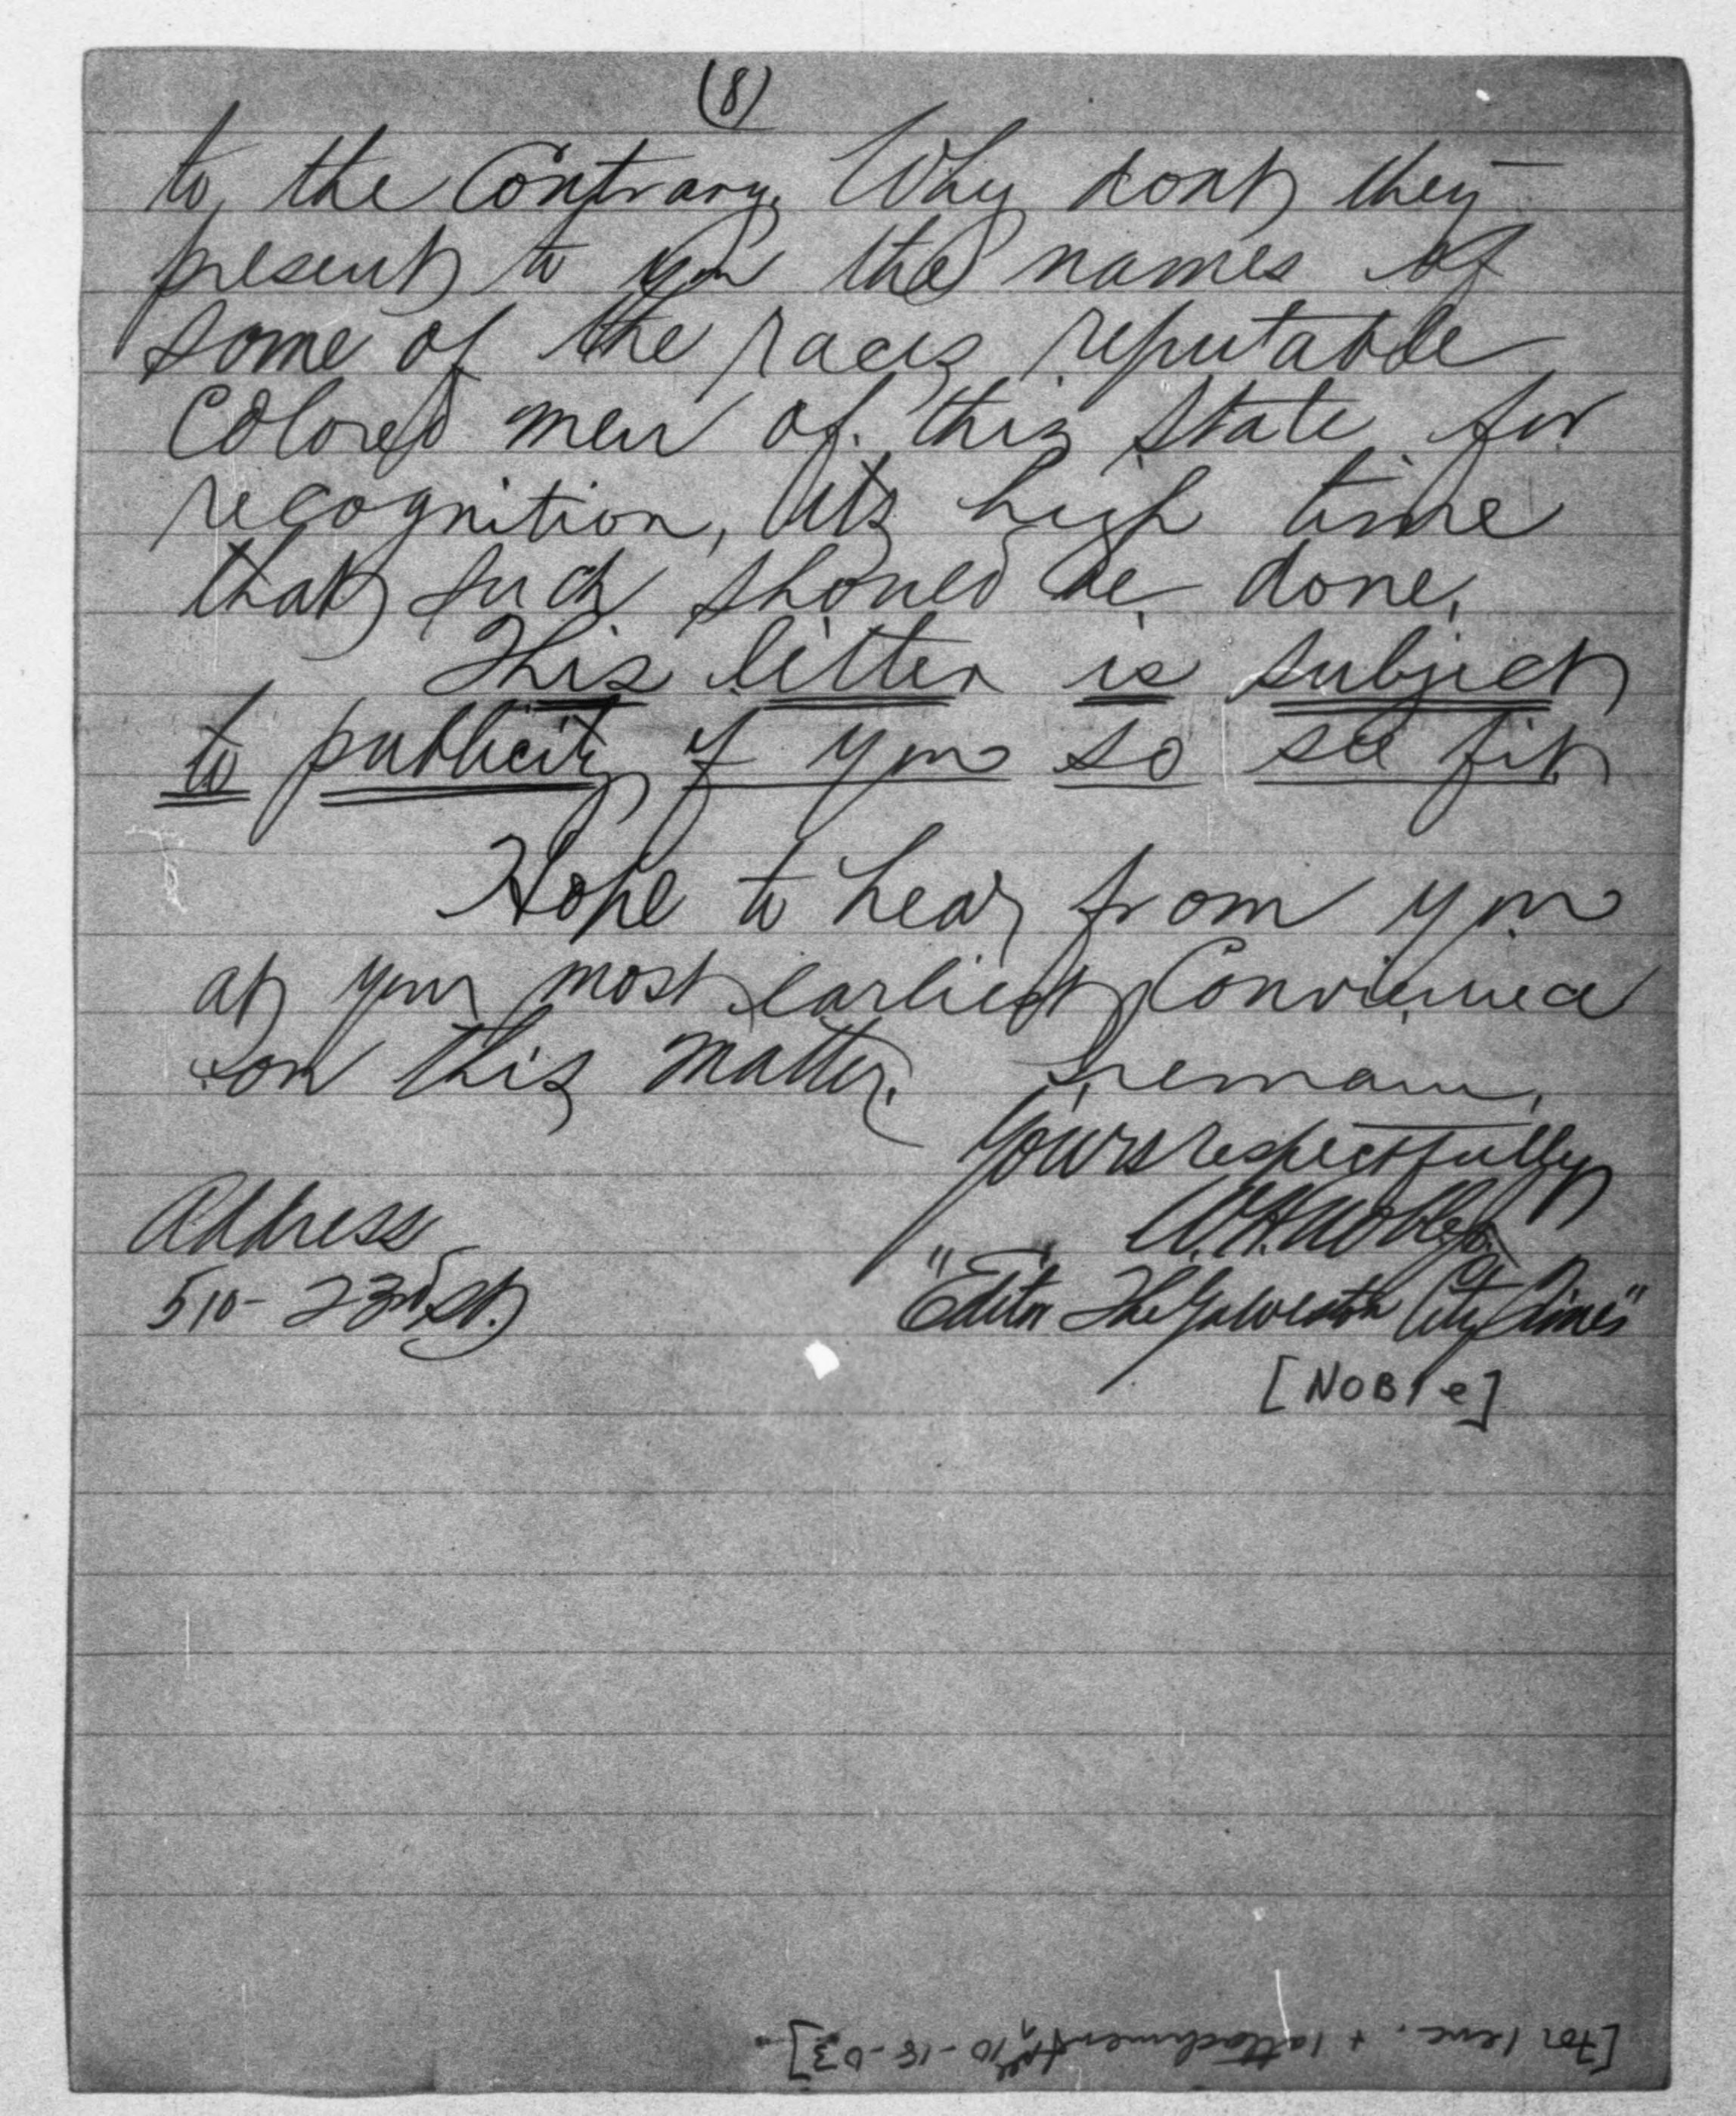 (8)
to the Contrary. Why dont they
present to you the names of
some of the races reputable
Colored men of this State for
recognition, its high time
that such should be done.
This letter is subject
to publicity if you so see fit
Hope to hear from you
at your most earliest Convinience
on this matter. I remain,
Yours respectfully
W. H. Noble Jr.
"Editor The Galveston City Times"
Address
510-23rd St.
[NOBle]
[For 1 enc. + attachment see 10-18-03]